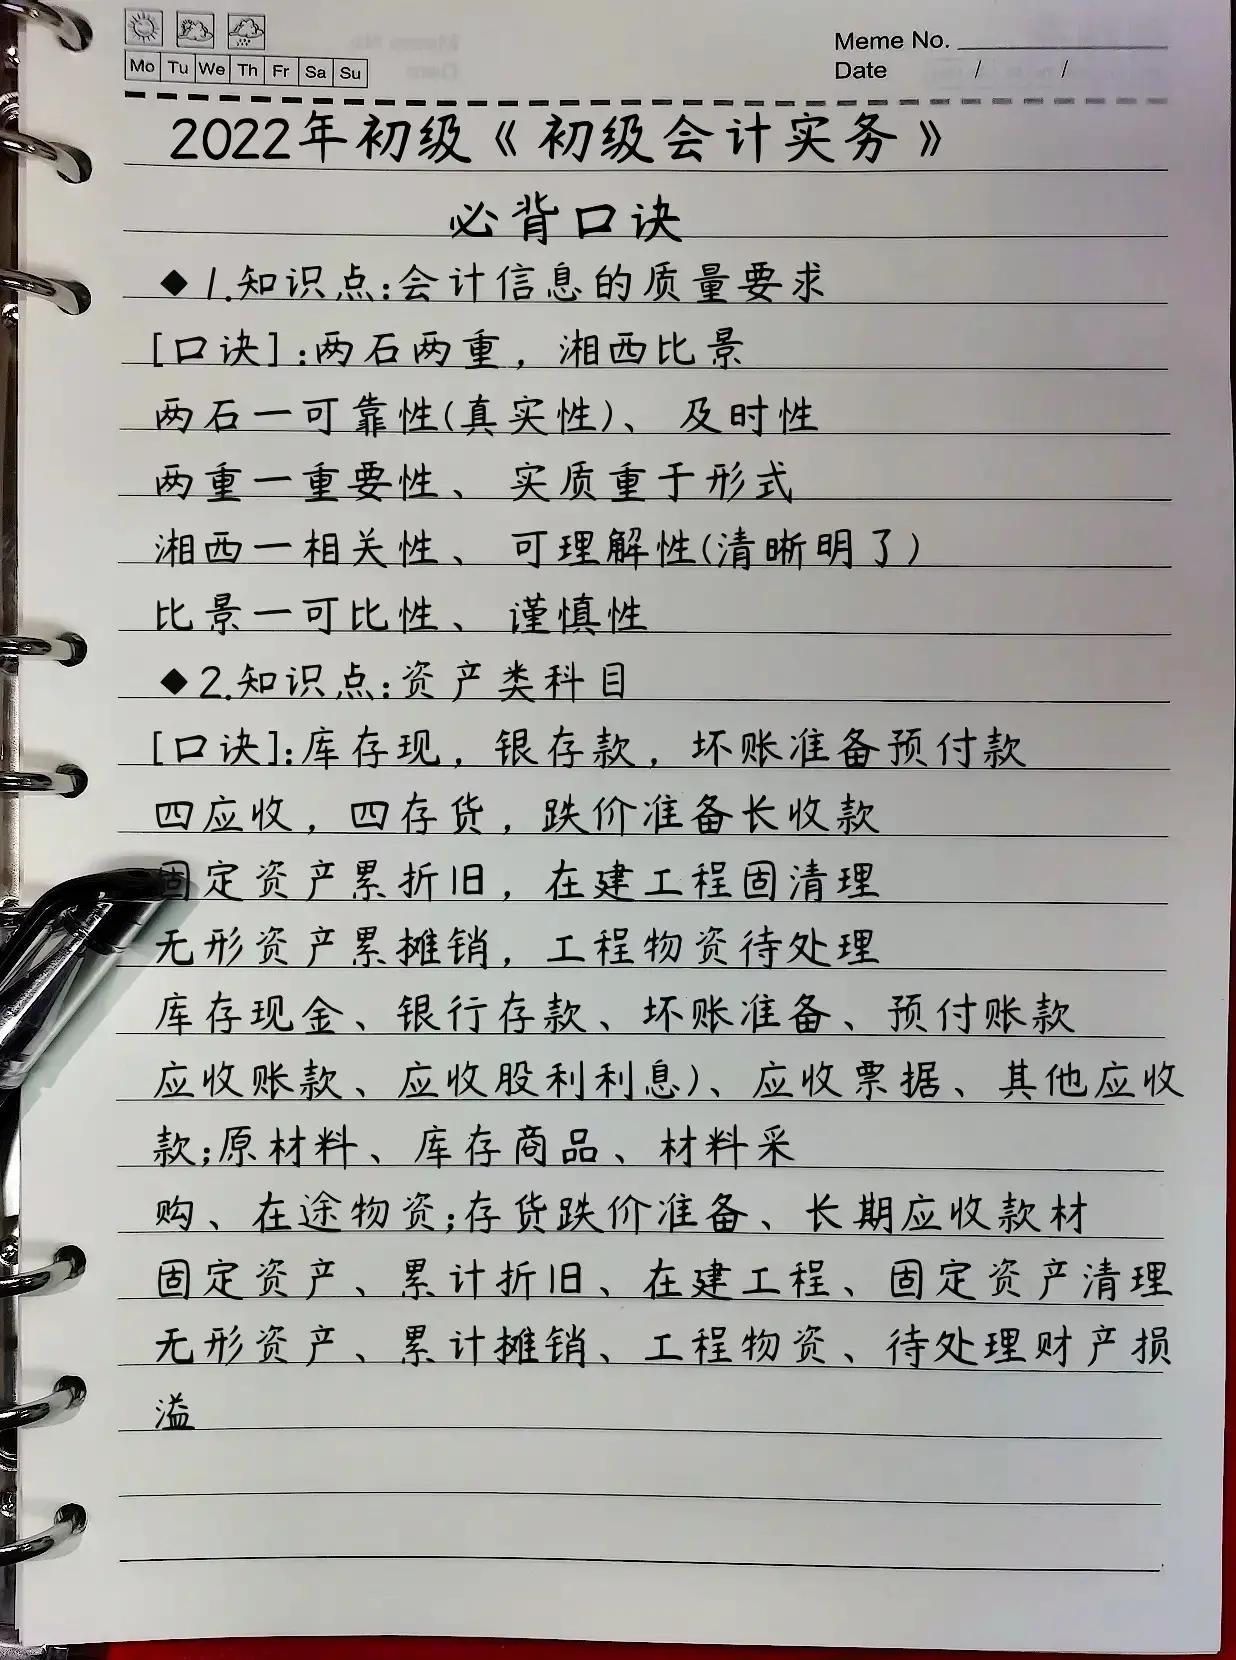 Mo Tu We Th Fr Sa Su
Meme No.
Date / /
2022年初级《初级会计实务》
必背口诀
◆1.知识点:会计信息的质量要求
[口诀]:两石两重，湘西比景
两石一可靠性(真实性)、及时性
两重一重要性、实质重于形式
湘西一相关性、可理解性(清晰明了)
比景一可比性、谨慎性
◆2.知识点:资产类科目
[口诀]:库存现，银存款，坏账准备预付款
四应收，四存货，跌价准备长收款
固定资产累折旧，在建工程固清理
无形资产累摊销，工程物资待处理
库存现金、银行存款、坏账准备、预付账款
应收账款、应收股利利息)、应收票据、其他应收
款;原材料、库存商品、材料采
购、在途物资;存货跌价准备、长期应收款材
固定资产、累计折旧、在建工程、固定资产清理
无形资产、累计摊销、工程物资、待处理财产损
溢